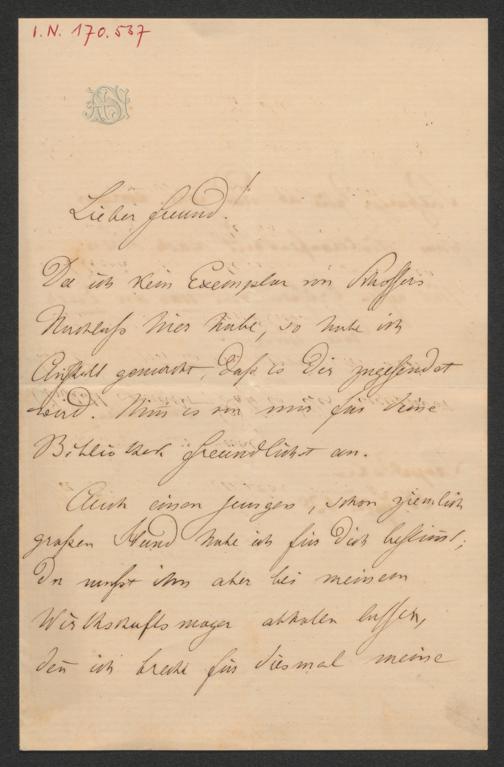 I.N. 170.537
Lieber Freund!
Da ich kein Exemplar von Schossers
Nachlaß hier habe, so habe ich
Anstalt gemacht, daß es Dir zugesendet
wird. Nim̅ es von mir für Deine
Bibliothek freundlichst an.
Auch einen jungen, schon ziemlich
großen Hund habe ich für Dich bestim̅t;
Du mußt ihn aber bei meinem
Wirthschafts abholen lassen,
den̅ ich breche für diesmal meine